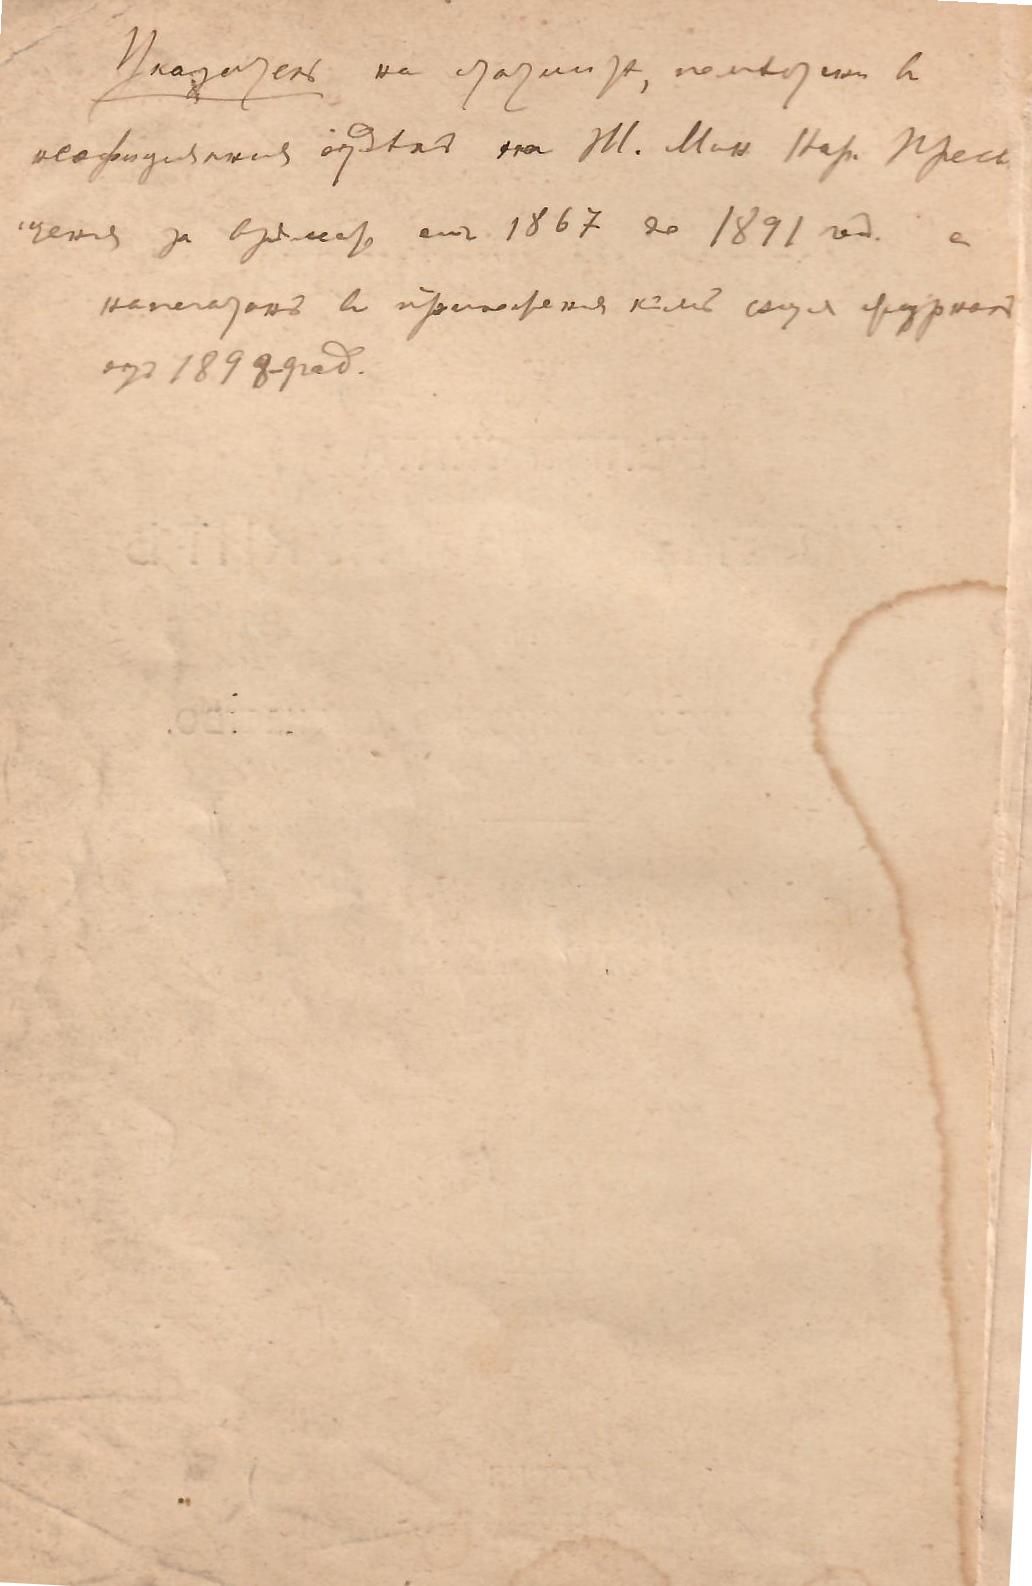 Указатель на статиитѣ, помѣстени в
неофициялния отдѣлъ на Ж. Мин Нар. Просв
щения за врѣмето отъ 1867 до 1891 год. е
напечатанъ в приложения къмъ същия журналъ
отъ 1898 год.